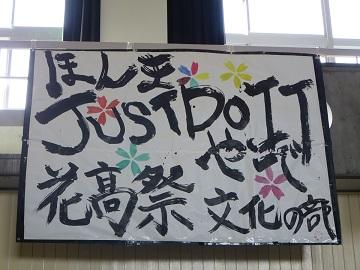 ほんま
JUST DO IT
やで
花高祭 文化の部